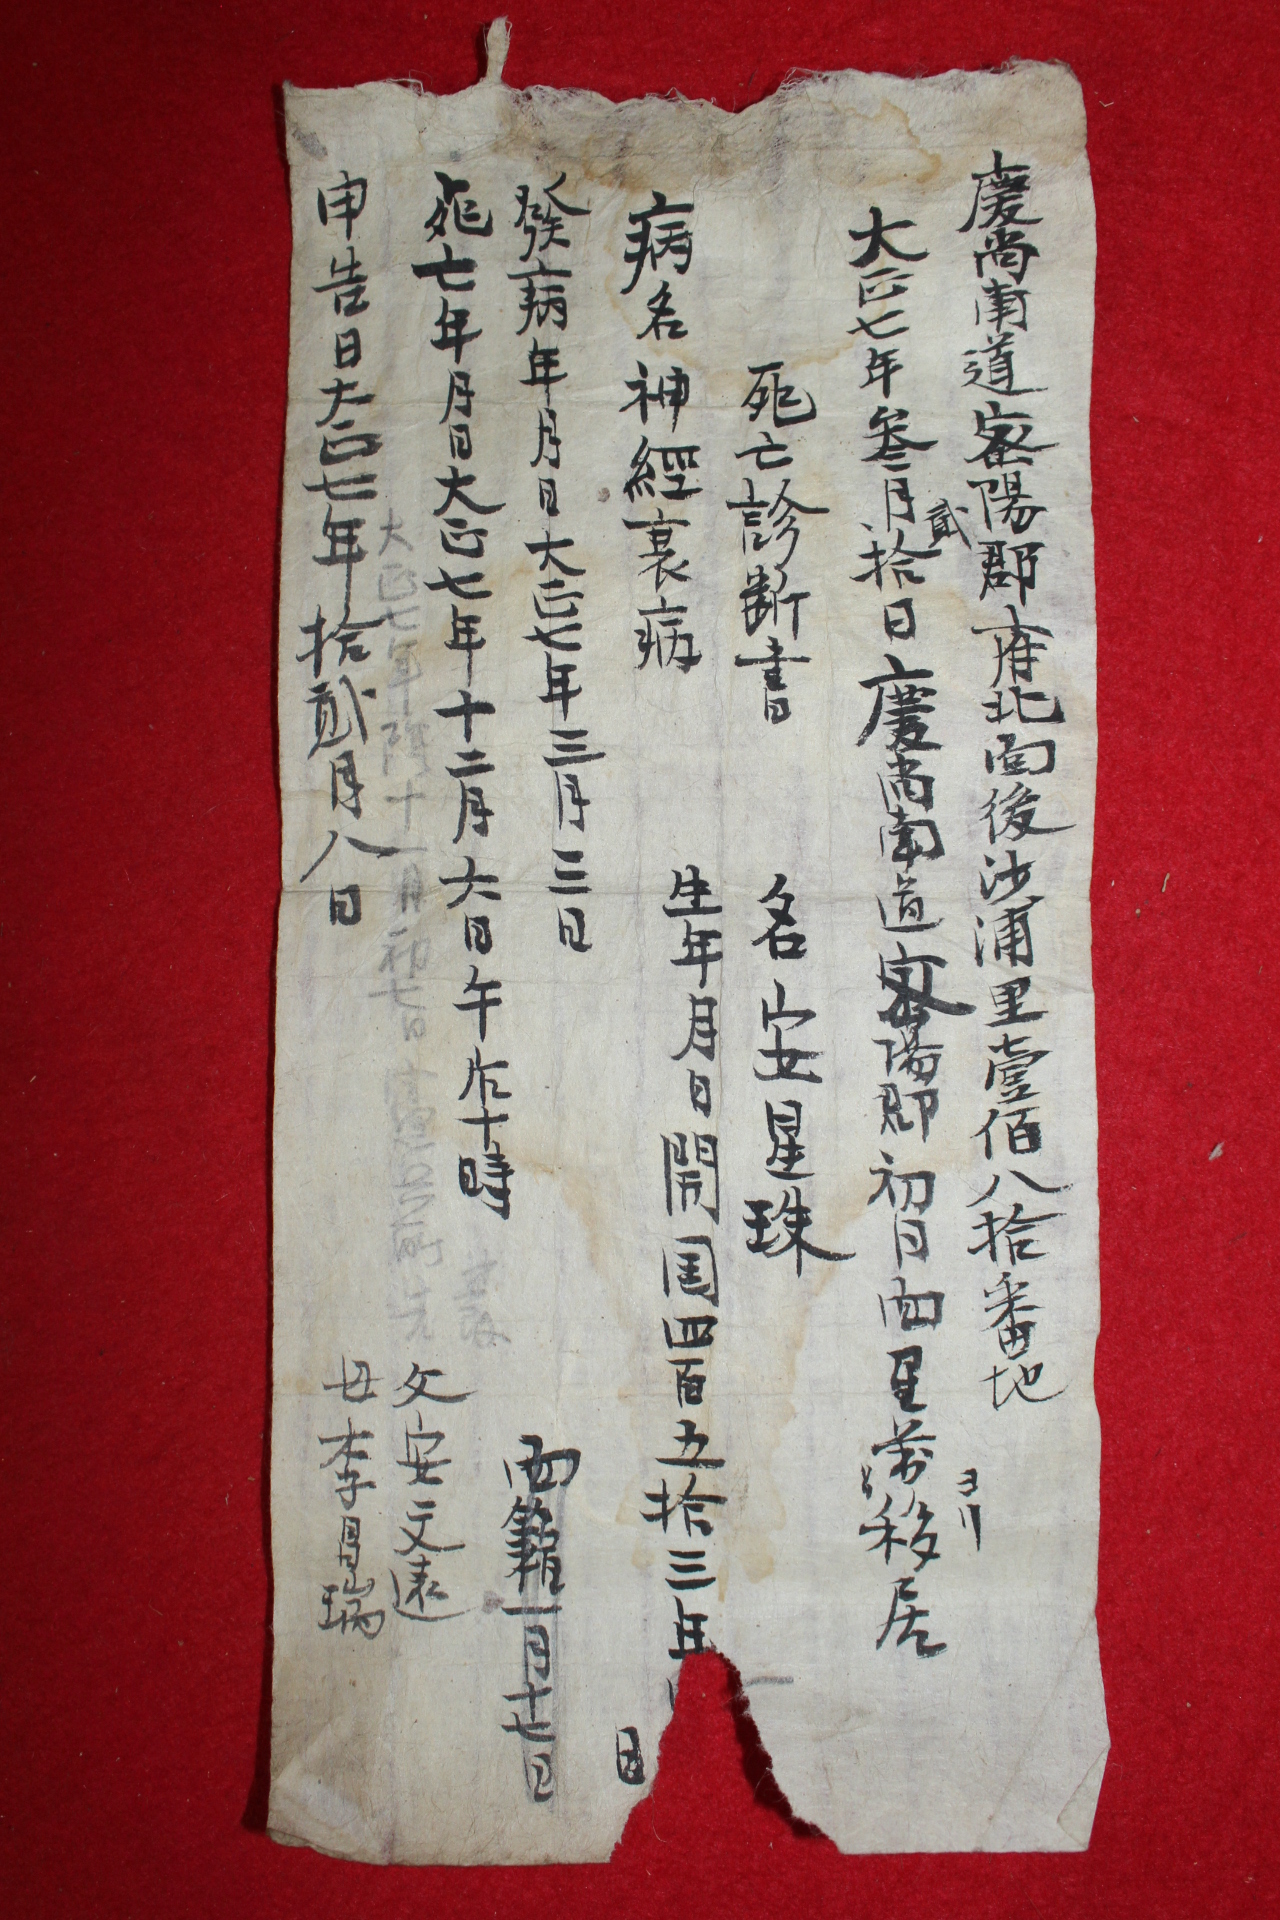 慶尚南道密陽郡府北面後沙浦里壹佰八拾番地
ヨリ
大正七年叁月拾貳日慶尚南道密陽郡初同面里
移居
死亡診断書
名安星珠
病名神經衰病
生年月日開国四百五拾三年
日
發病年月日大正七年三月三日
西籍一月十七日
死亡年月日大正七年十二月六日午后十時
父安文遠
大正七年陰十一月初七日
申告日大正七年拾貳月八日
母李昌瑞